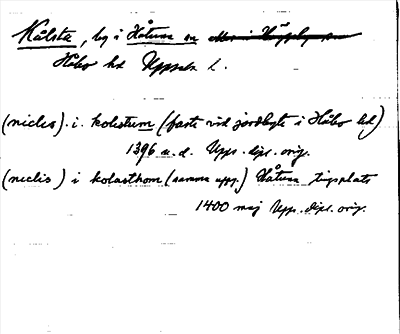 Kålsta, by i Håtuna sn
Håbo hd Uppsala l.
(nicles) i kolestum (faste vid jordbyte i Håbo hd)
1396 u. d. Upps. dipl. orig.
(neclis) i kolasthom (samma uppg.) Håtuna tingsplats
1400 maj Upps. dipl. orig.